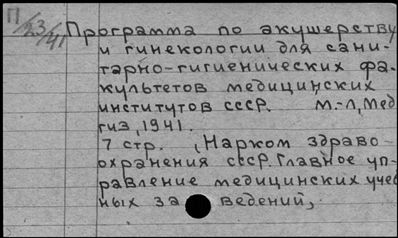 П/23/41
Программа по акушерству
и гинекологии для сани-
тарно-гигиенических фа-
культетов медицинских
институтов СССР. М.-Л, Мед
гиз, 1941.
7 стр. , Нарком здраво-
охранения СССР. Главное уп-
равление медицинских учеб
ных за ведений,